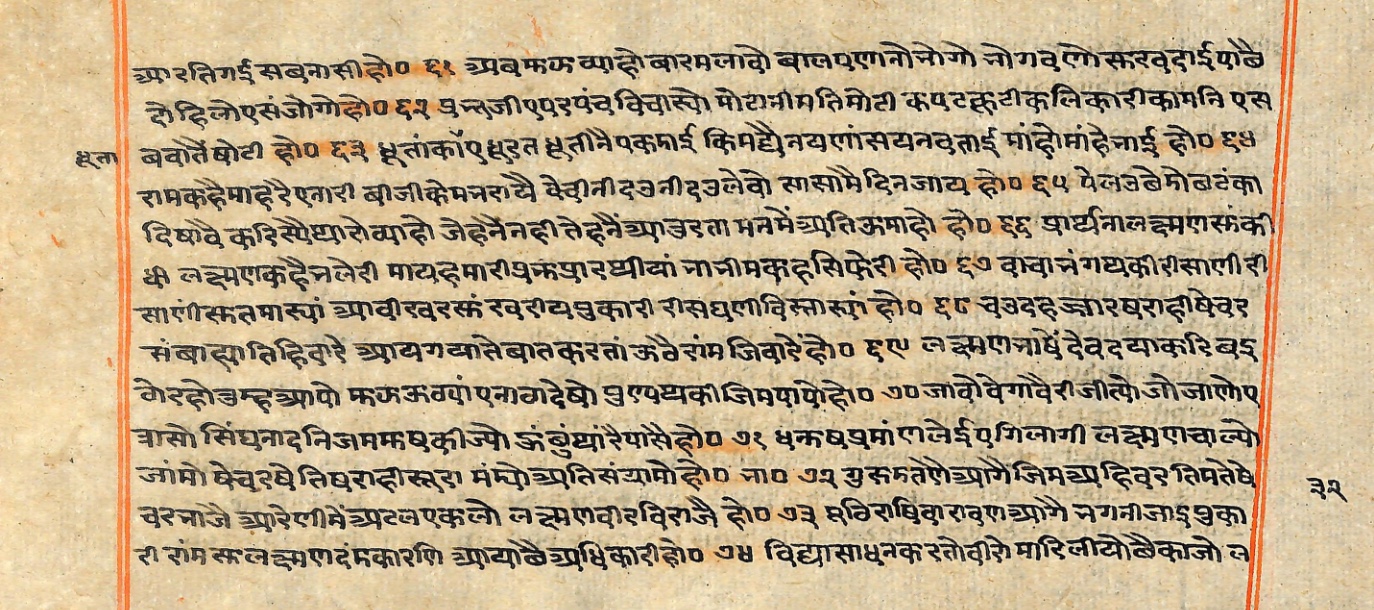 आरतिगई सबनासी हो० ६१ अब मऊ व्याहो बारमलावो बालपणानो जोगो जोगवणो सूरवदाई पोबै
दोहिलो ए संजोगो हो० ६२ पुन्जजी ए परपंच विचास्यो मोटानी मति मोटी कपट कूटी कलिकारी कामनि एस
धूता
बवातैं षोटी हो० ६३ धूतांकों ए धूरत धूतीनै एकमाई किमद्यै नयणां सयन बताई मांहो मांहे नाई हो० ६४
राम कहै माहरै ए नारी बीजी के मन राषै बेवी नीद उनीद उलेवो सासामै दिन जाय हो० ६५ पेल उबे मोब टंका
दिषावै करिस्यै थारो व्याहो जेहनैं नही तेहनैं आतुरता मनमें अति ऊमाहो हो० ६६ प्रार्थना लक्ष्मण सूं की
धी लक्ष्मण कहै नलेरी माय हमारी पुऊ प्रारथीयां नानीम कहसि फेरी हो० ६७ वाचा नंग थकी रीसाणी री
साणी सूतमास्यां आवी खरसूं खरीय पुकारी रीस घणी विस्तास्यां हो० ६८ चउदह ज्जार षराही षेचर
संबाह्या तिहिवारै आय गया ते बात करतां ऊठै रांम जिवारें हो० ६९ लक्ष्मण भाषें देव दया करि बइ
ठो रहो तुम्ह आपो मऊ ऊठ्यां ए नाग देषो पुण्य थकी जिम पापो हो० ७० जावो वेगा वैरी जीत्यो जो जाणो ए
त्रासो सिंघनाद निज मऊष कीज्यो ऊं बुं थांरै पासै हो० ७१ धनुष प्रमांण लेई पगि लागी लक्ष्मण चाल्यो
जांमो षेचरषै तिषराही सूरा मंम्यो अति संग्रामो हो० ना० ७२ गुरूमतणै आगै जिम अहिवर तिम ते षे
३२
चर भाजै आरेणीमें अटल एकलो लक्ष्मण वीर विराजै हो० ७३ मूठि राषिवा रावण आगै भगनी जाइ पुका
री रांम सूलक्ष्मण दंमकारणि आयो बै अधिकारी हो० ७४ विद्यासाधन करतो वीरो मारि लीयो बै काजो ल